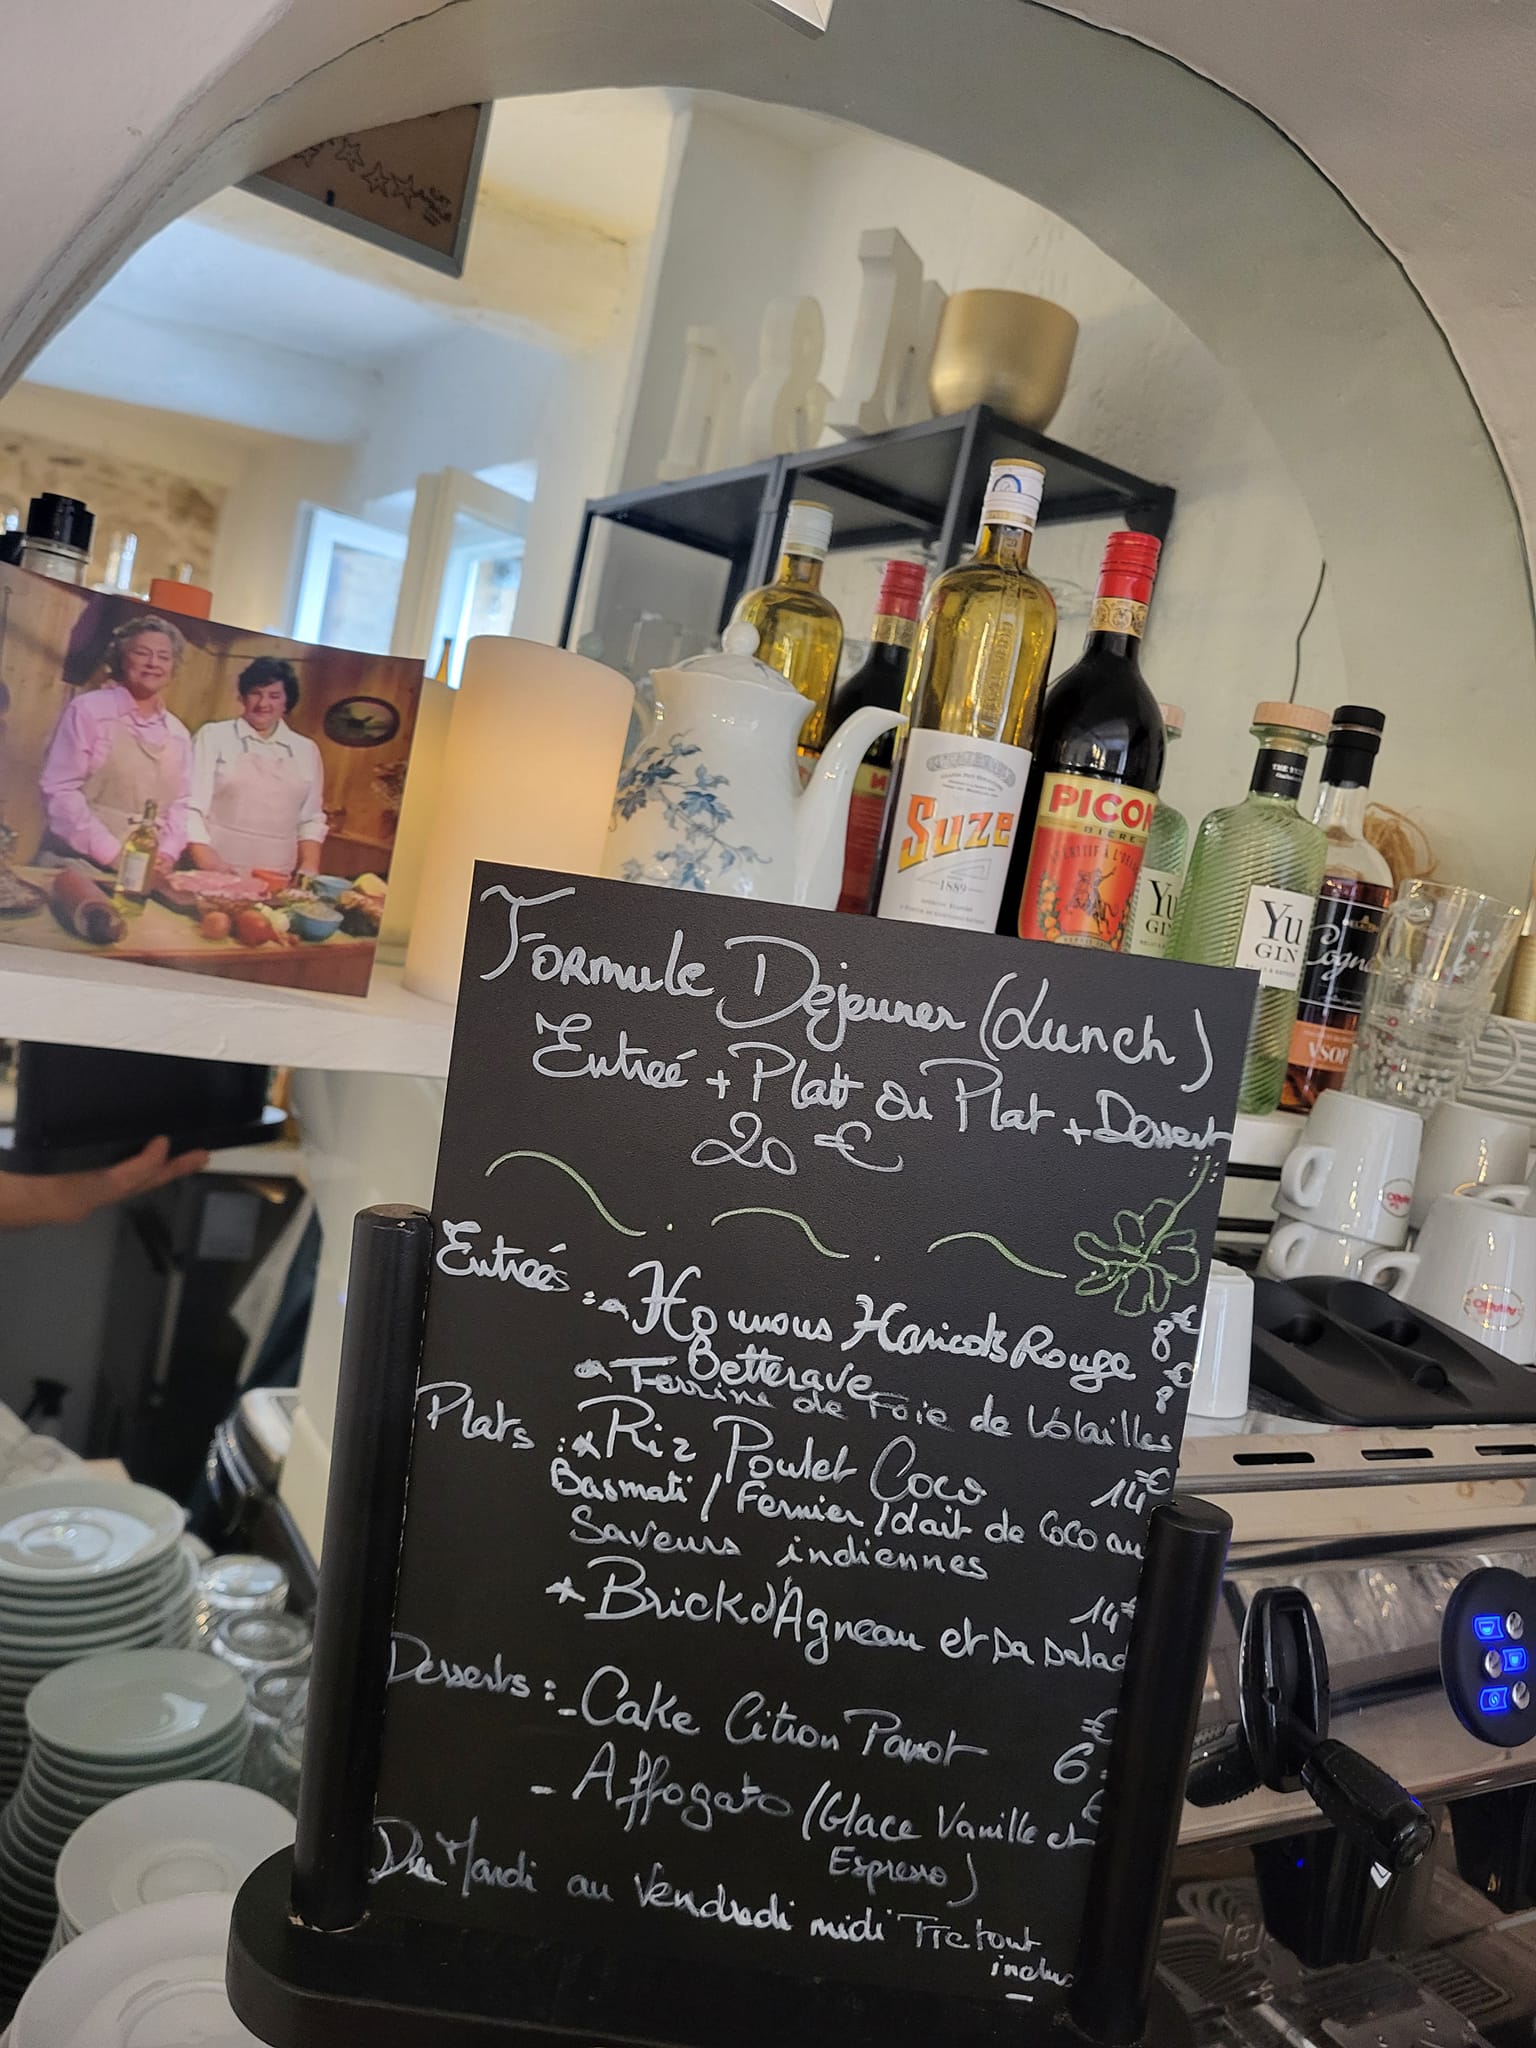 SUZE
1889
PICON
BIÈRE
Yu
GIN
Yu
GIN
Cogna
VSOP
Formule Déjeuner (Lunch)
Entrée + Platt ou Plat + Dessert
20 €
Entrées : - Houmous Haricots Rouge 8€
Betterave
- Terrine de Foie de Volailles 8€
Plats : * Riz Poulet Coco 14€
Basmati / Fermier / lait de Coco au
Saveurs indiennes
* Brick d'Agneau et sa salad 14€
Desserts : - Cake Citron Pavot 6€
- Affogato (Glace Vanille et €
Espresso)
Du Mardi au Vendredi midi TTC tout
inclus